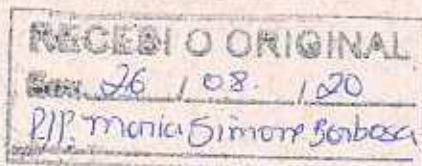 RECEBI O ORIGINAL
Em, 26 / 08. / 20
P/P. Monica Simone Barbosa